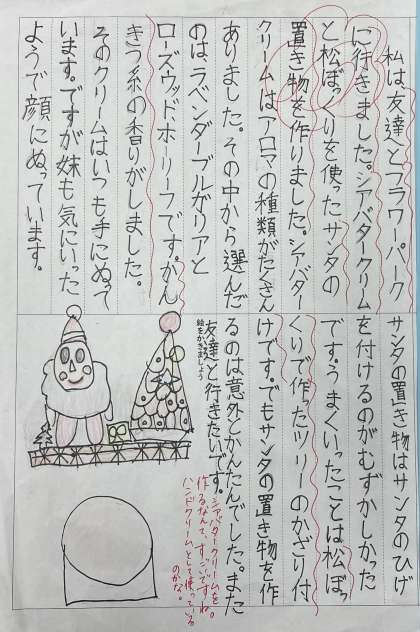 私は友達とフラワーパーク
に行きました。シアバタークリーム
と松ぼっくりを使ったサンタの
置き物を作りました。シアバター
クリームはアロマの種類がたくさん
ありました。その中から選んだ
のは、ラベンダーブルガリアと
ローズウッド、ホーリーフです。かん
きつ系の香りがしました。
そのクリームはいつも手にぬって
います。ですが妹も気にいった
ようで顔にぬっています。
サンタの置き物はサンタのひげ
を付けるのがむずかしかった
です。うまくいったことは松ぼっ
くりで作ったツリーのかざり付
けです。でもサンタの置き物を作
るのは意外とかんたんでした。また
友達と行きたいです。
絵をかきましょう
シアバタークリームを
作るなんて、すごいですね。
ハンドクリームとして使っている
のかな。